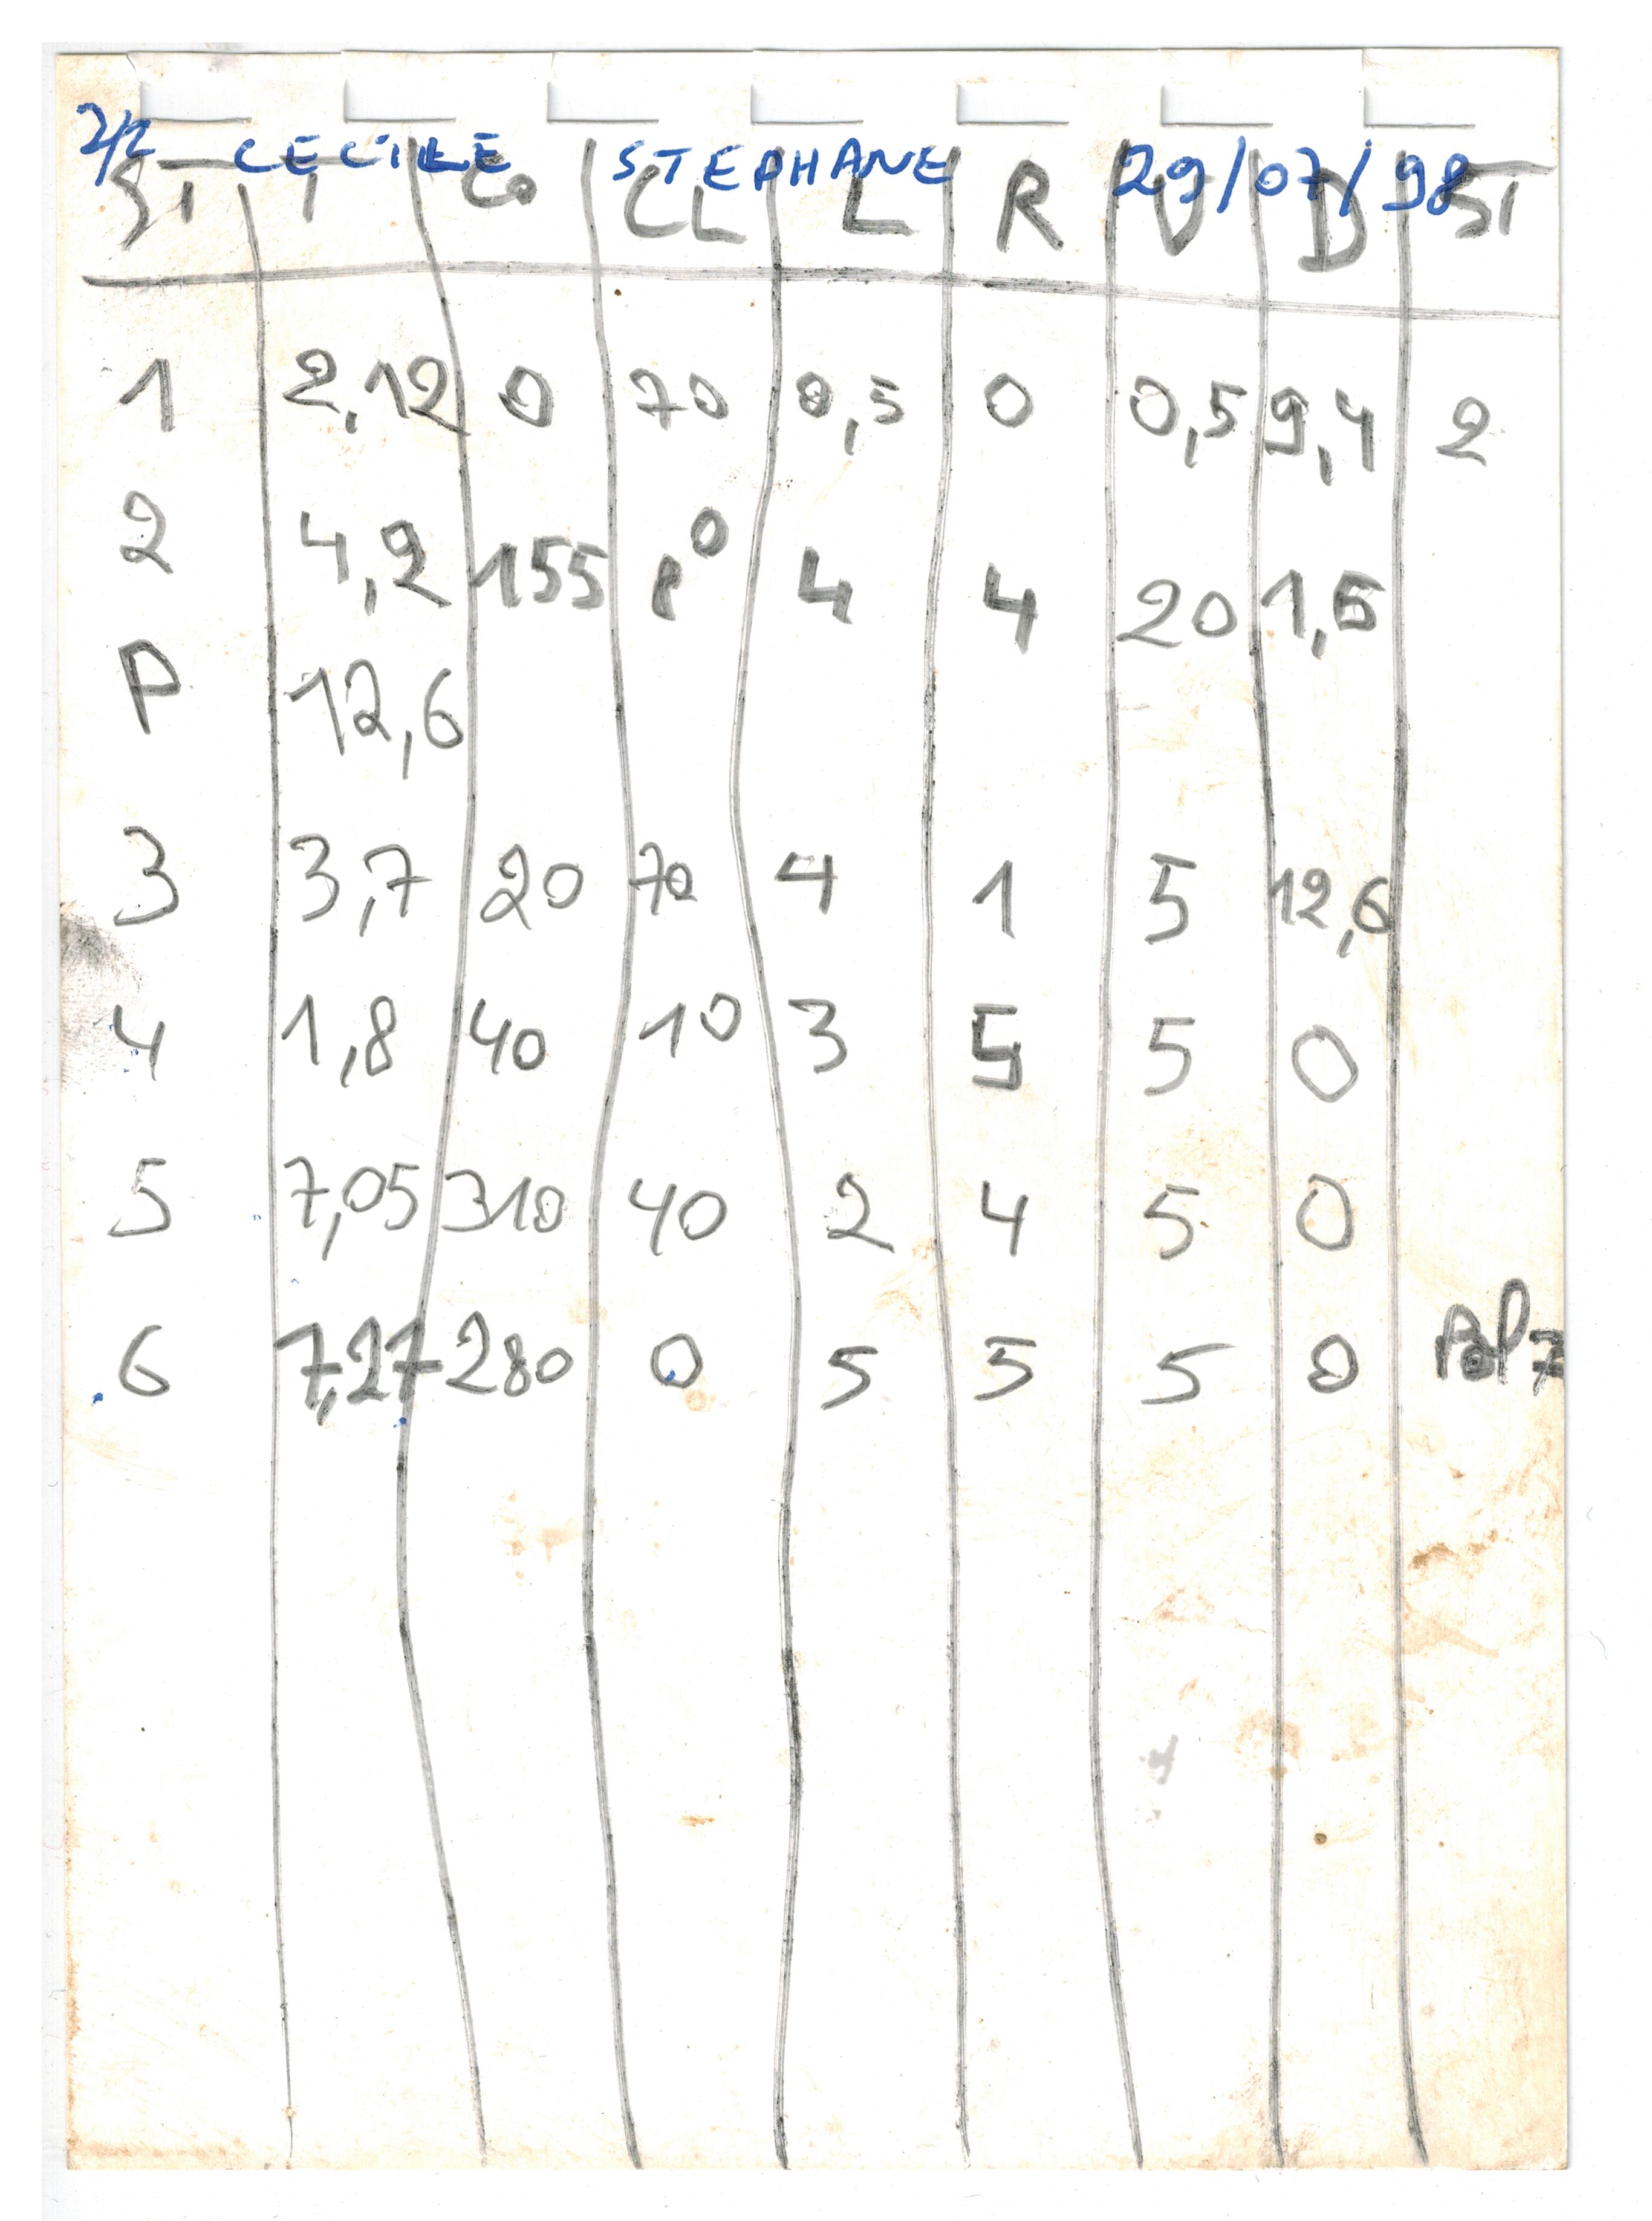 2/2 CECILE STEPHANE 29/07/98
ST T Co CL L R V D ST
1 2,12 0 70 0,5 0 0,5 9,4 2
2 4,2 155 80 4 4 20 1,5
P 12,6
3 3,7 20 70 4 1 5 12,6
4 1,8 40 10 3 5 5 0
5 7,05 310 40 2 4 5 0
6 7,27 280 0 5 5 5 0